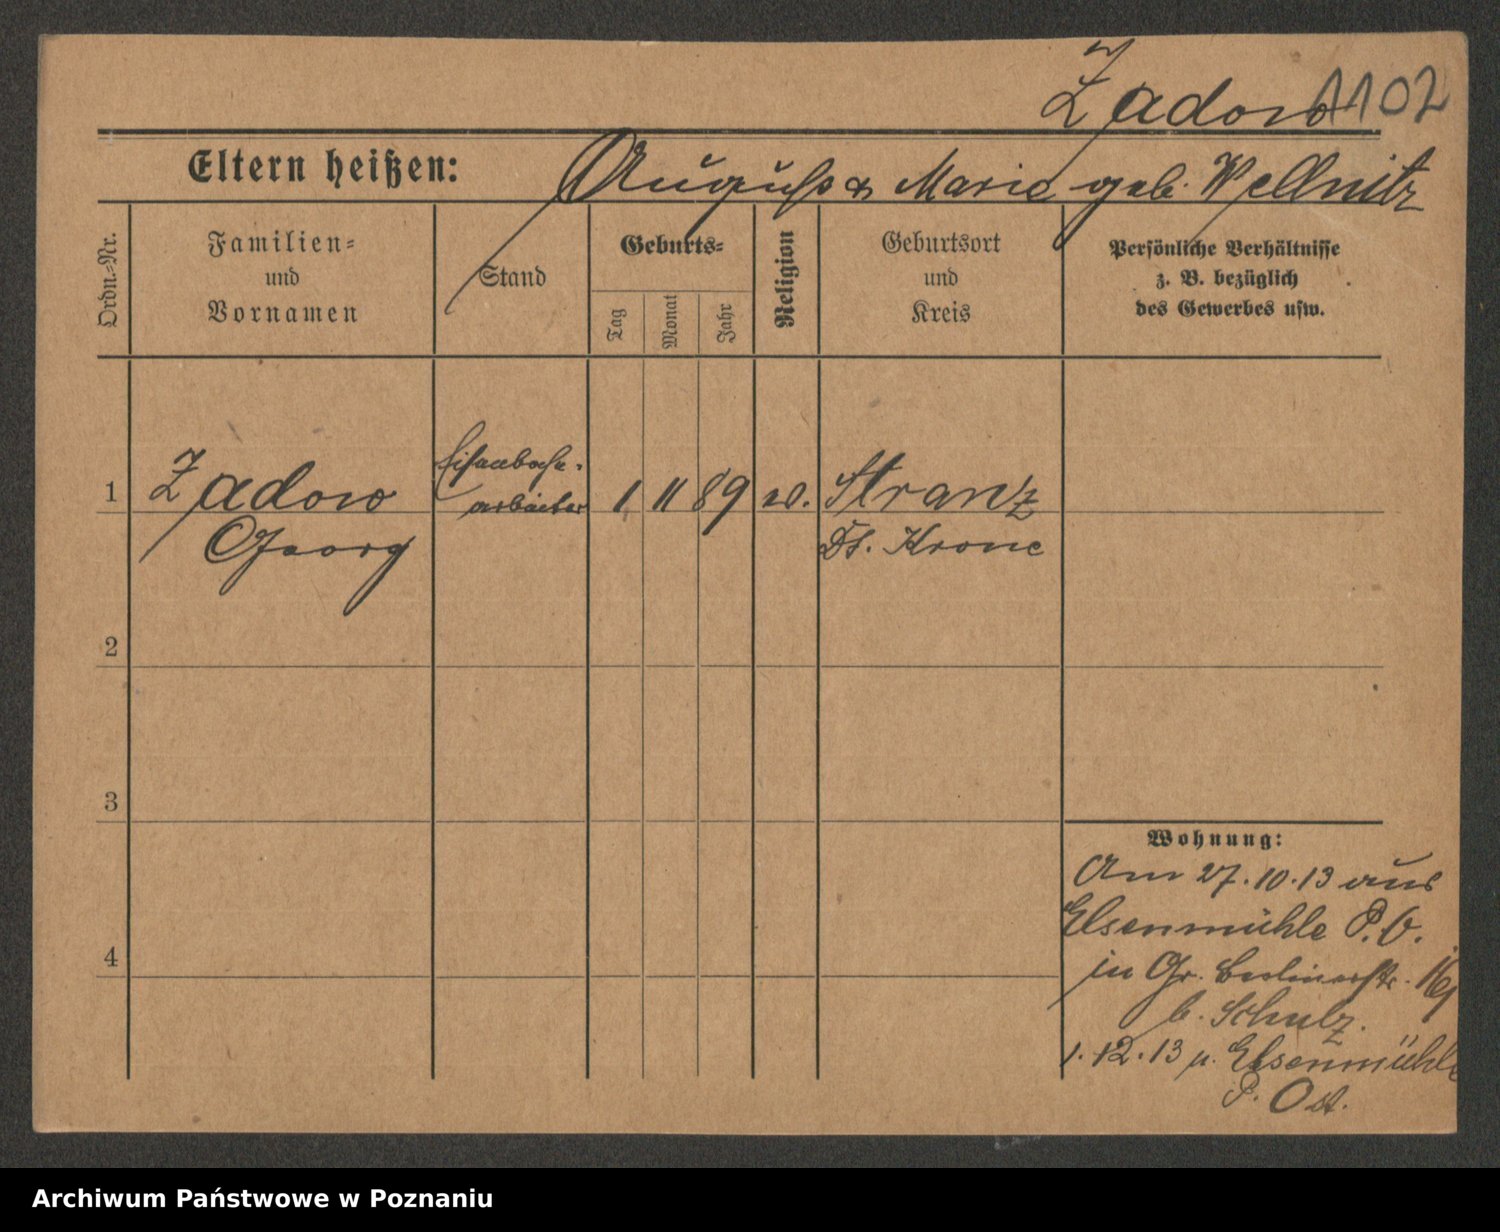 Zadow 1102
Eltern heißen: August & Marie geb. Wellnitz
Ordn.-Nr.
Familien-
und
Vornamen
Stand
Geburts-
Tag
Monat
Jahr
Religion
Geburtsort
und
Kreis
Persönliche Verhältnisse
z. B. bezüglich
des Gewerbes usw.
1 Zadow Eisenbahn- 1 11 89 ev. Stranz
arbeiter
Georg Dt. Krone
2
3
4
Wohnung:
Am 27.10.13 aus
Elsenmühle P. O.
in Gr. Berlinerstr.
b. Schulz.
1.12.13 n. Elsenmühle
P. Ost.
Archiwum Państwowe w Poznaniu